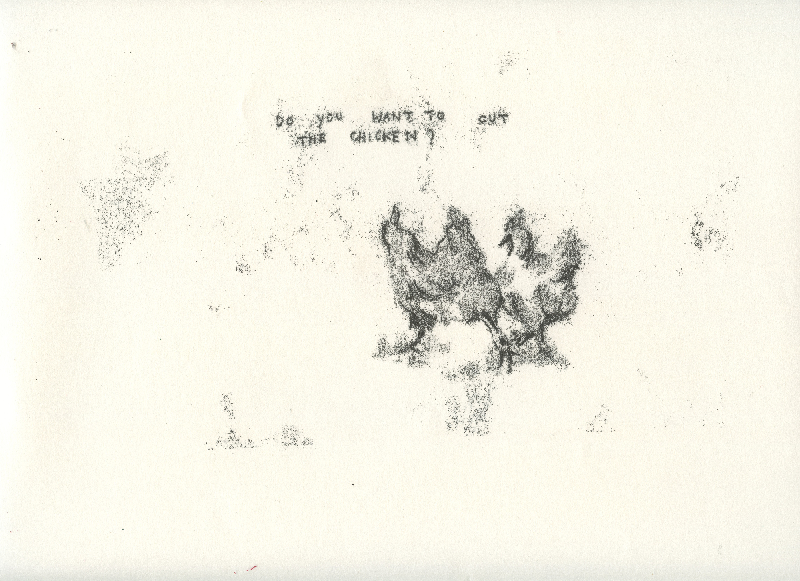 DO YOU WANT TO CUT
THE CHICKEN?